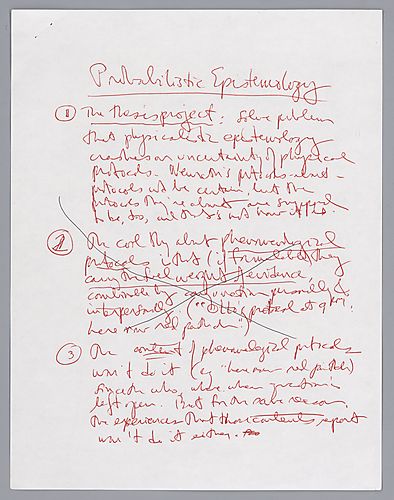 Probabilistic Epistemology
① The thesis project: Solve problem
that physicalistic epistemology
crashes on uncertainty of physical
protocols. Neurath's protocols-about-
protocols wd be certain, but the
protocols they're about are supposed
to be, too, and that's not how it is.
② The cool thg about phenomenological
protocols is that (if formulated) they
carry the full weight of evidence,
combineable by conjunction personally &
interpersonally. ("Otto's protocol at 9
here now red patch")
③ The content of phenomenological protocols
won't do it (eg "here now red patch")
since the who, where when question is
left open. But for the same reason,
the experiences that those contents report
won't do it either.